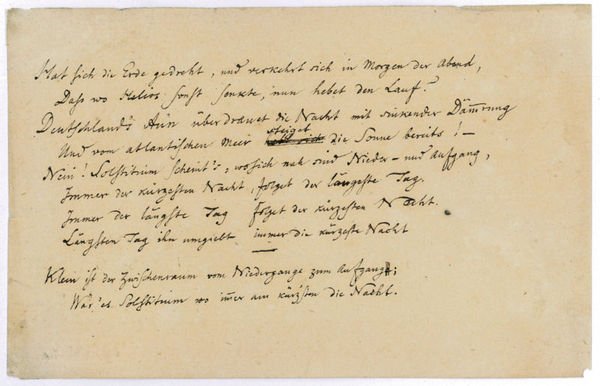 Hat sich die Erde gedreht, und verkehrt sich in Morgen der Abend,
Dass wo Helios sonst senkte, nun hebet den Lauf?
Deutschland's Aün überdrauet die Nacht mit sinkender Dämmrung
Und vom atlantischen Meer steiget die Sonne bereits! –
Nein! Solstitium scheint's, wo sich nah sind Nieder- und Aufgang,
Immer der kürzesten Nacht, folget der längste Tag.
Immer der längste Tag folget der kürzesten Nacht.
Längsten Tag ihn umgiebt immer die kürzeste Nacht
Klein ist der Zwischenraum vom Niedergange zum Aufgang;
Wär' es Solstitium wo immer am kürzsten die Nacht.